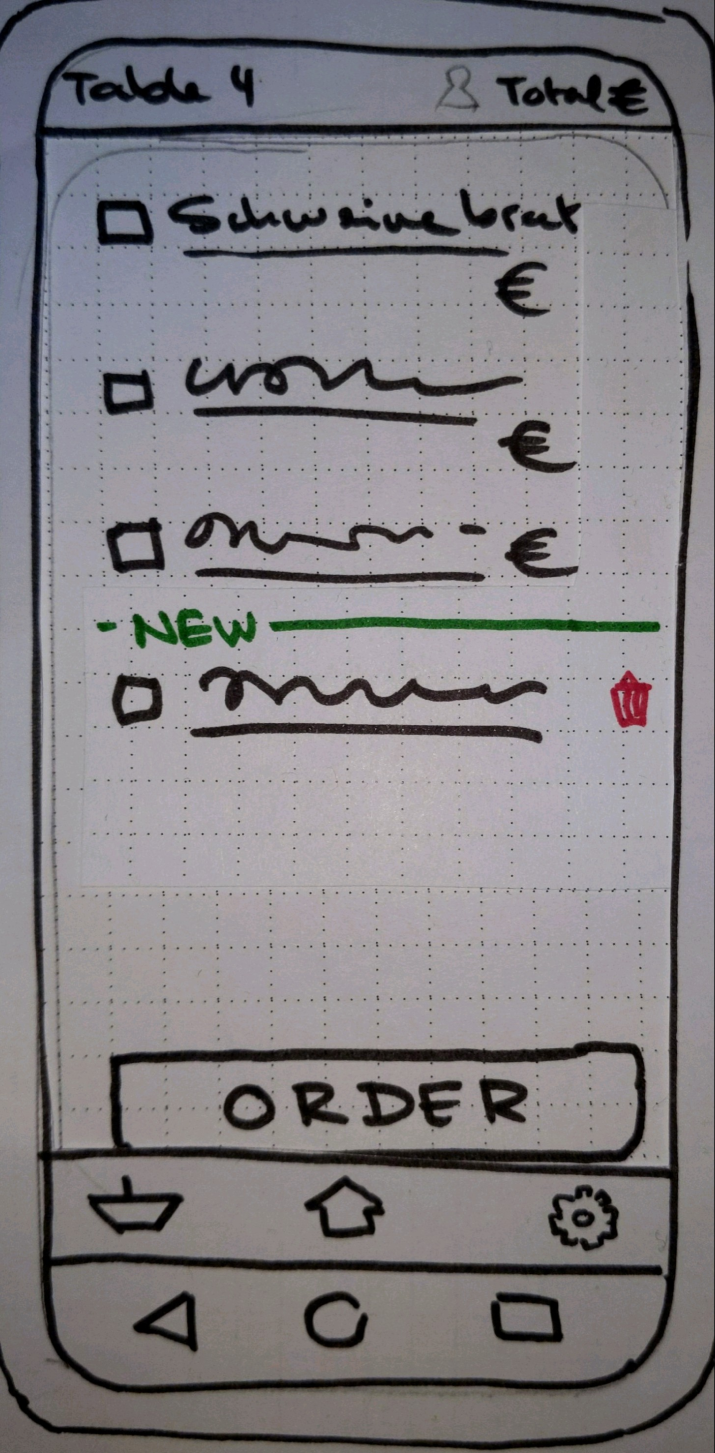 Table 4 Total €
Schweinebrat
€
€
€
- NEW
ORDER